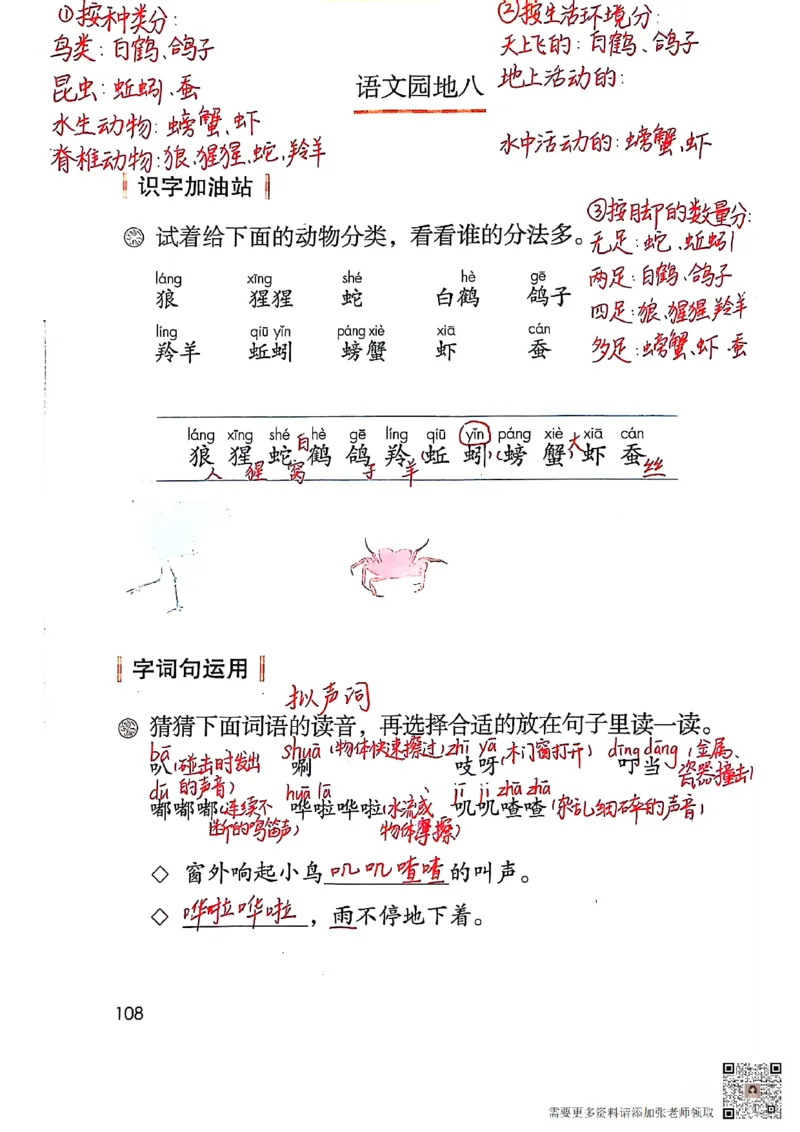 ①按种类分:
鸟类:白鹤、鸽子
昆虫:蚯蚓、蚕
水生动物:螃蟹、虾
脊椎动物:狼、猩猩、蛇、羚羊
②按生活环境分:
天上飞的:白鹤、鸽子
地上活动的:
水中活动的:螃蟹、虾
语文园地八
识字加油站
试着给下面的动物分类,看看谁的分法多。
③按脚的数量分:
无足:蛇、蚯蚓
两足:白鹤、鸽子
四足:狼、猩猩、羚羊
多足:螃蟹、虾、蚕
láng xīng shé hè gē
狼 猩猩 蛇 白鹤 鸽子
líng qiū yǐn páng xiè xiā cán
羚羊 蚯蚓 螃蟹 虾 蚕
láng xīng shé hè gē líng qiū yǐn páng xiè xiā cán
狼 猩 蛇 白 鹤 鸽 羚 (蚯 蚓) (螃 蟹) 大 虾 蚕
人 猩 窝 子 羊 丝
字词句运用
拟声词
猜猜下面词语的读音,再选择合适的放在句子里读一读。
bā shuā (物体快速擦过) zhī yā (木门窗打开) dīng dāng (金属、
叭 (碰击时发出 唰 吱呀 叮当 瓷器撞击)
dū 的声音) huā lā jī jī zhā zhā
嘟嘟嘟 (连续不 哗啦哗啦 (水流或 叽叽喳喳 (杂乱细碎的声音)
断的鸣笛声) 物体摩擦)
◇ 窗外响起小鸟叽叽喳喳的叫声。
◇ 哗啦哗啦,雨不停地下着。
108
需要更多资料请添加张老师领取